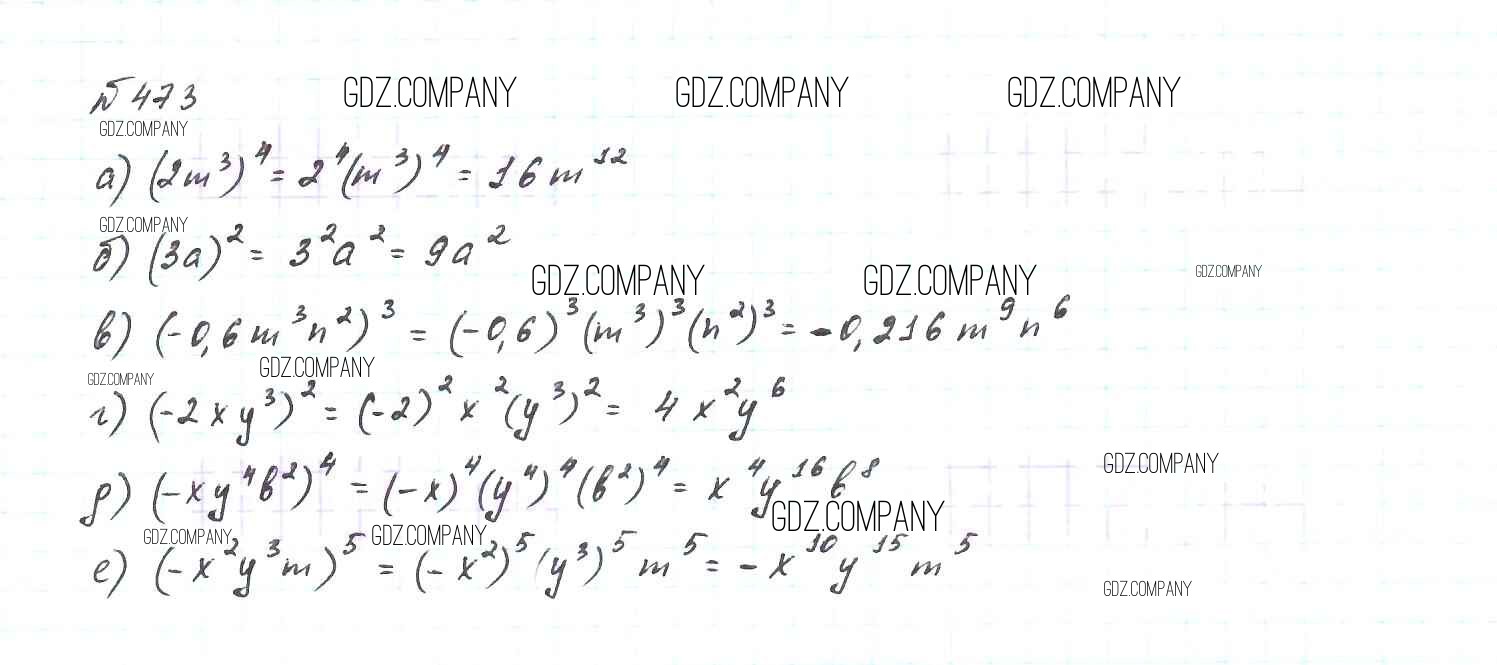 №473 GDZ.COMPANY GDZ.COMPANY GDZ.COMPANY
GDZ.COMPANY
а) (2m³)⁴ = 2⁴(m³)⁴ = 16m¹²
GDZ.COMPANY
б) (3a)² = 3²a² = 9a²
GDZ.COMPANY GDZ.COMPANY GDZ.COMPANY
в) (-0,6m³n²)³ = (-0,6)³(m³)³(n²)³ = -0,216m⁹n⁶
GDZ.COMPANY GDZ.COMPANY
г) (-2xy³)² = (-2)²x²(y³)² = 4x²y⁶
GDZ.COMPANY
д) (-xy⁴b²)⁴ = (-x)⁴(y⁴)⁴(b²)⁴ = x⁴y¹⁶b⁸
GDZ.COMPANY
GDZ.COMPANY GDZ.COMPANY
е) (-x²y³m)⁵ = (-x²)⁵(y³)⁵m⁵ = -x¹⁰y¹⁵m⁵
GDZ.COMPANY